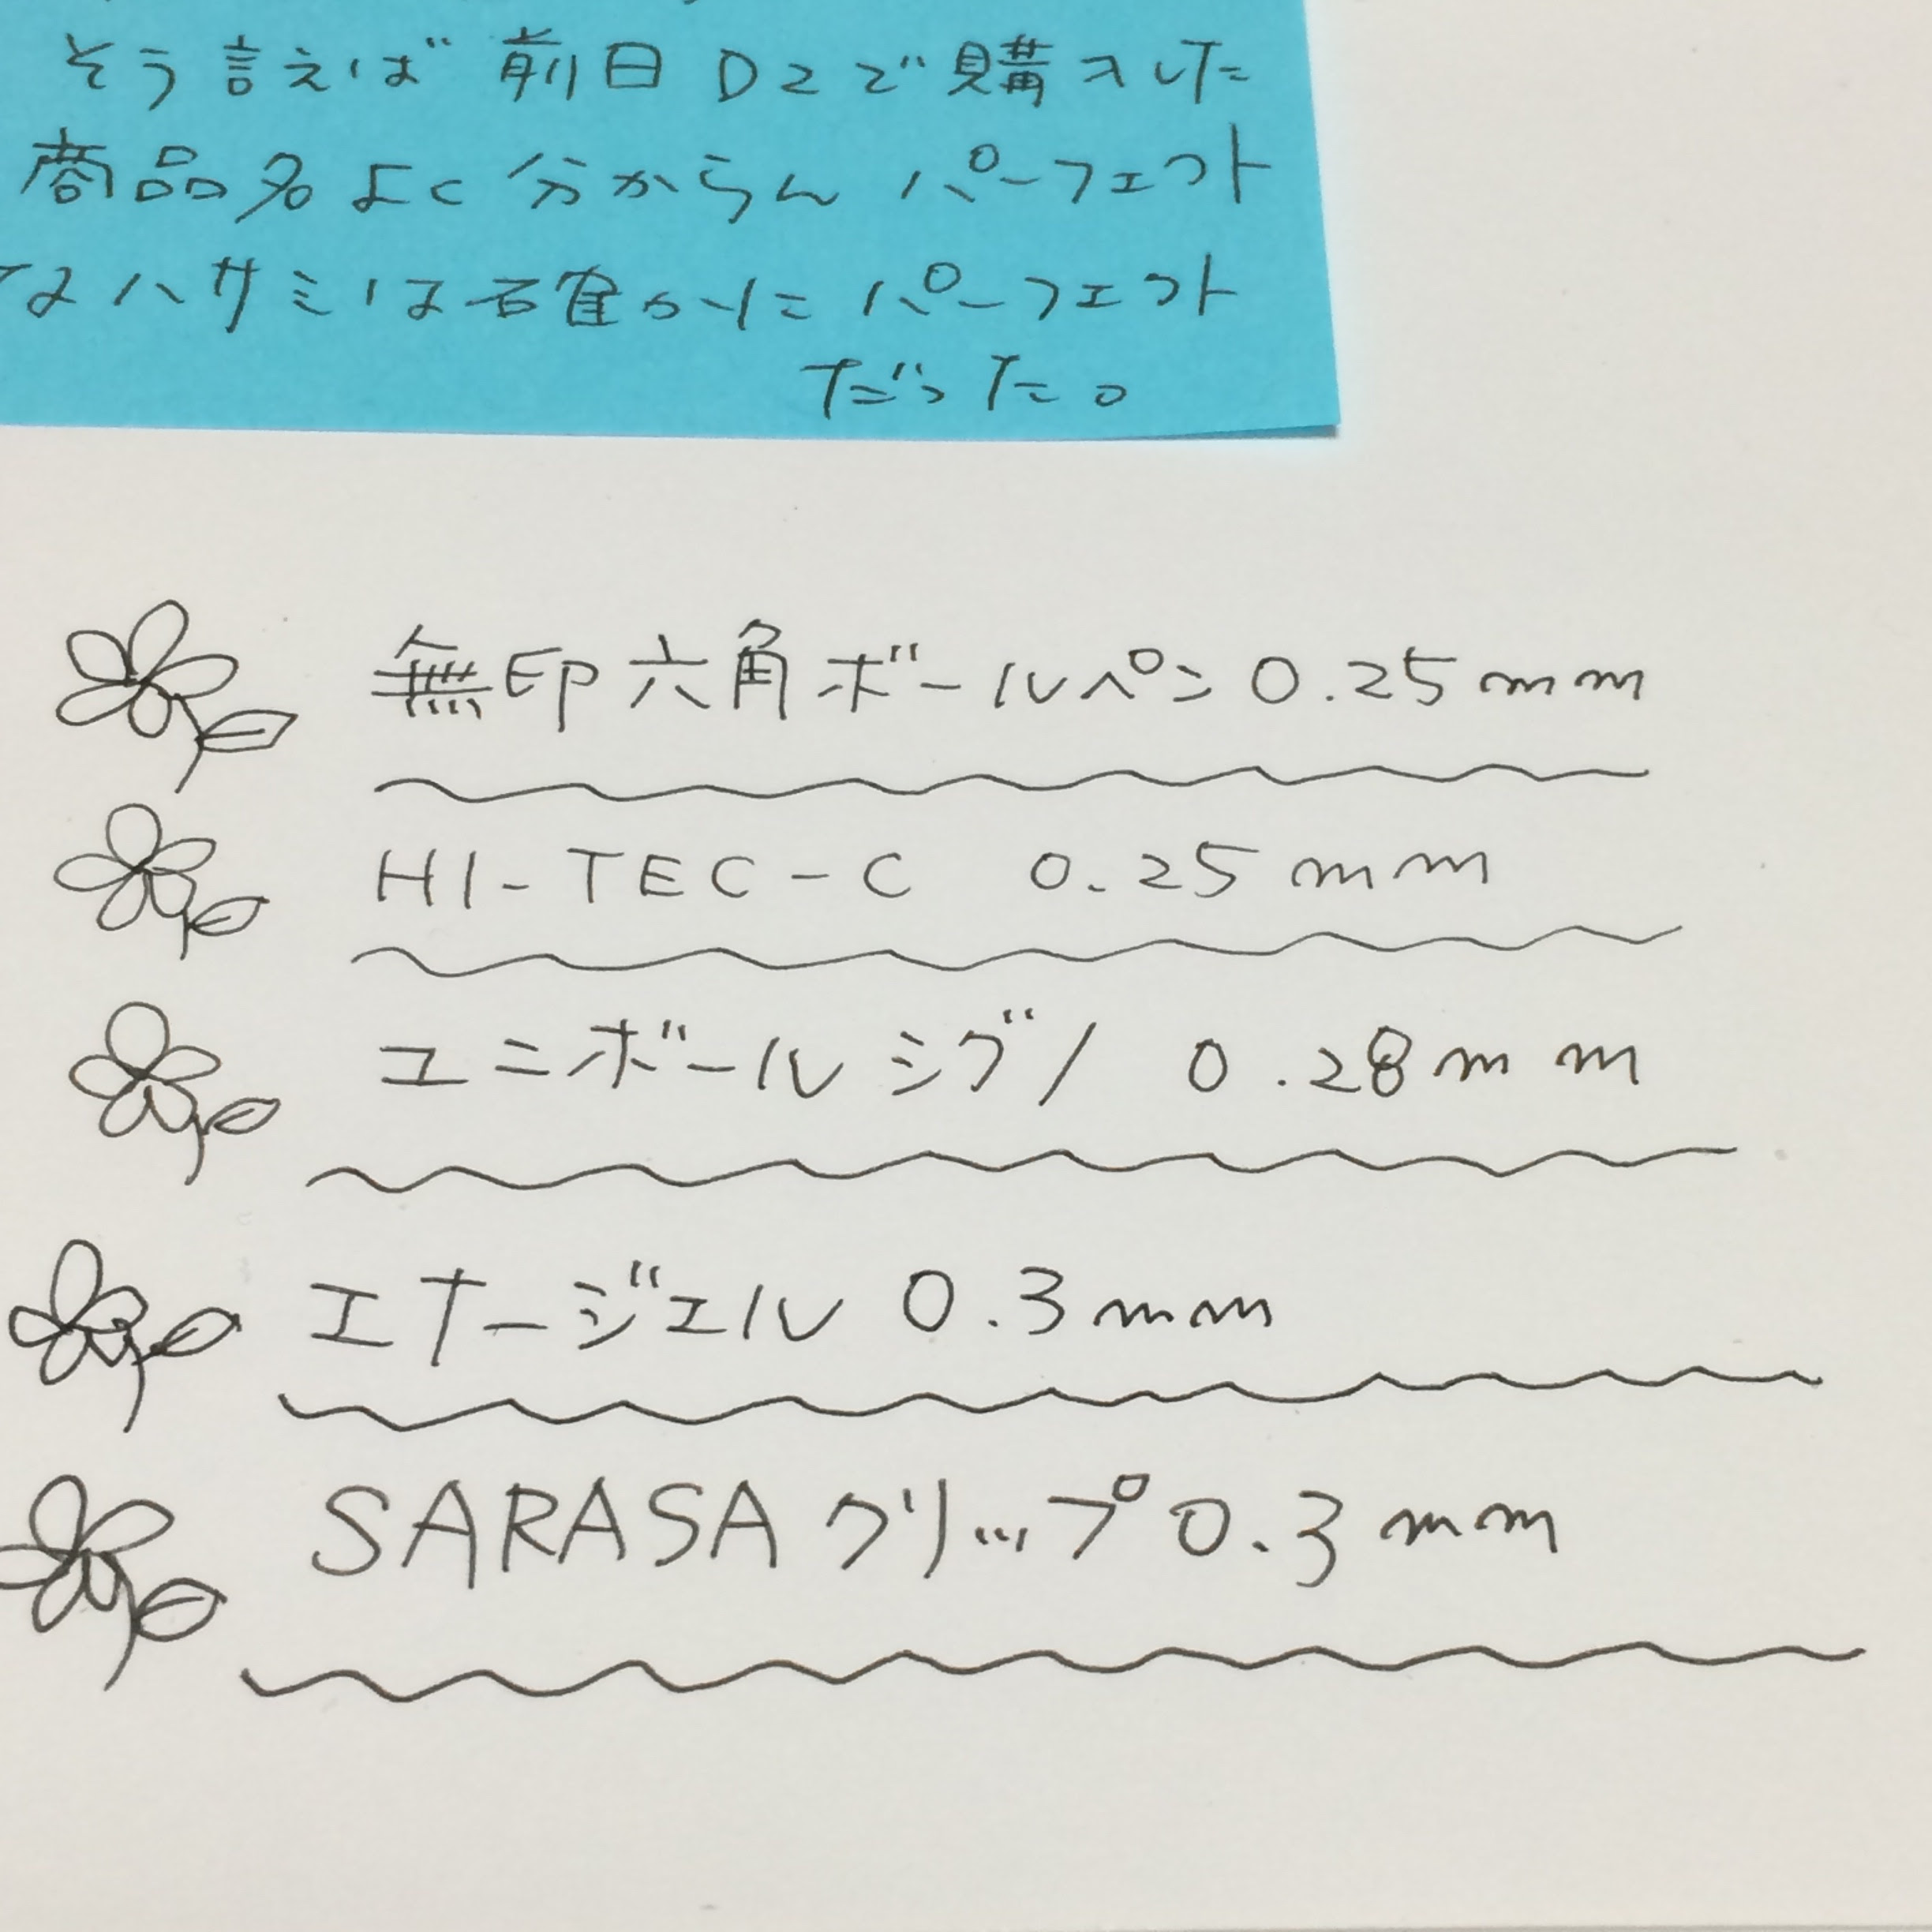 そう言えば 前日 D2で購入した
商品名よく分からん パーフェクト
なハサミは確かに パーフェクト
だった。
無印六角ボールペン 0.25mm
HI-TEC-C 0.25mm
ユニボール シグノ 0.28mm
エナージェル 0.3mm
SARASA クリップ 0.3mm